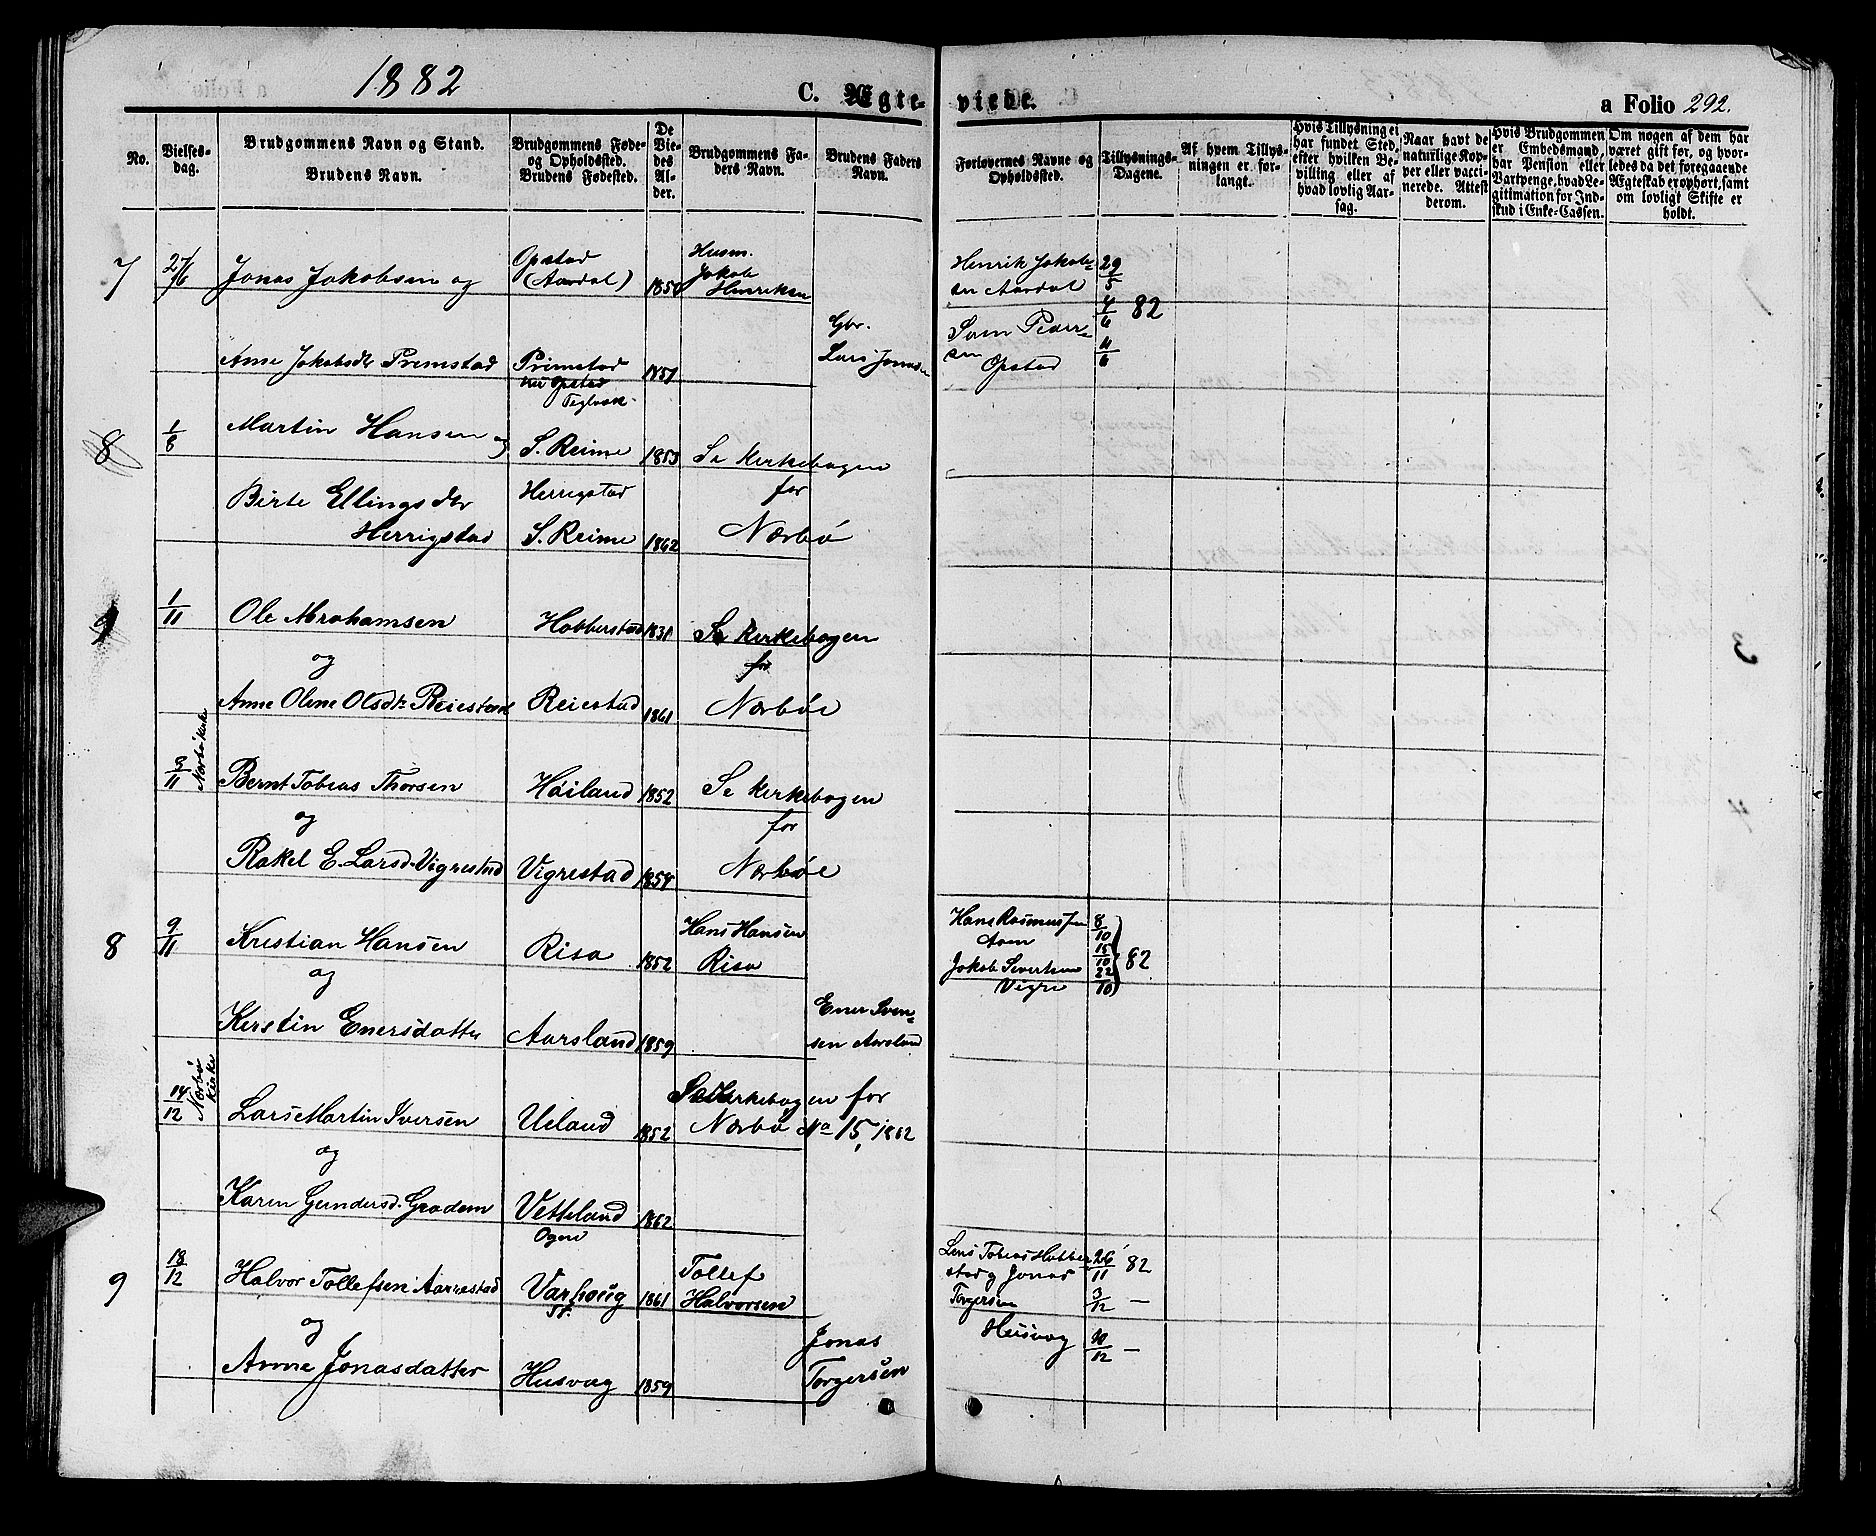 1882
C. Ægte-
viede.
a Folio 292.
No.
Vielses-
dag.
Brudgommens Navn og Stand.
Brudens Navn.
Brudgommens Føde-
og Opholdssted.
Brudens Fødested.
De
Vie-
des
Al-
der.
Brudgommens Fa-
ders Navn.
Brudens Faders
Navn.
Forlovernes Navne og
Opholdssted.
Tillysnings-
Dagene.
Af hvem Tillys-
ningen er for-
langt.
Hvis Tillysning ei
har fundet Sted,
efter hvilken Be-
villing eller af
hvad lovlig Aar-
sag.
Naar havt de
naturlige Kop-
per eller vacci-
nerede. Attest
derom.
Hvis Brudgommen
er Embedsmand,
har Pension eller
Vartpenge, hvad Le-
gitimation for Ind-
skud i Enke-Cassen.
Om nogen af dem har
været gift før, og hvor-
ledes da det foregaaende
Ægteskab er ophørt, samt
om lovligt Skifte er
holdt.
7 27/6 Jonas Jakobsen og Opstad (Aardal) 1850 Husm. Jakob Henriksen Henrik Jakob-
sen Aardal 29/5
4/6 82
Anne Jakobsdr Primstad Primstad 1851 Gbr. Lars Jonasen Som Peder-
sen Opstad 11/6
nu Opstad
Teglverk
8 1/8 Martin Hansen og S. Reime 1853 Se Kirkebogen
Birte Ellingsdtr Herrigstad for
Herrigstad S. Reime 1862 Nærbö
9 1/11 Ole Abrahamsen Hobberstad 1831 Se Kirkebogen
og for
Anne Olene Olsdtr Reiestad Reiestad 1861 Nærböe
3/11 Nærbö Kirke Bernt Tobias Thorsen Höiland 1852 Se Kirkebogen
og for
Rakel E. Larsd. Vigrestad Vigrestad 1854 Nærböe
8 9/11 Kristian Hansen Risa 1852 Hans Hansen
Risa
Hans Rasmussen 8/10
15/10 82
Jakob Sivertsen 22/10
Vigre
og
Kerstin Enersdatter Aarsland 1859 Ener Sven-
sen Aarsland
14/12 Nærbö Kirke Lars Martin Iversen Ueland 1852 Se Kirkebogen for
Nærbö No 15, 1882
og
Karin Gundersd. Grødem Vetteland 1862
Ogne
9 18/12 Halvor Tollefsen Aarrestad Varhoug 1861 Tollef
Halvorsen
Lars Tobias Hobber-
stad og Jonas 26/11 82
Torgersen 3/12 —
Husvog 10/12 —
og
Anne Jonasdatter Husvog 1859 Jonas
Torgersen